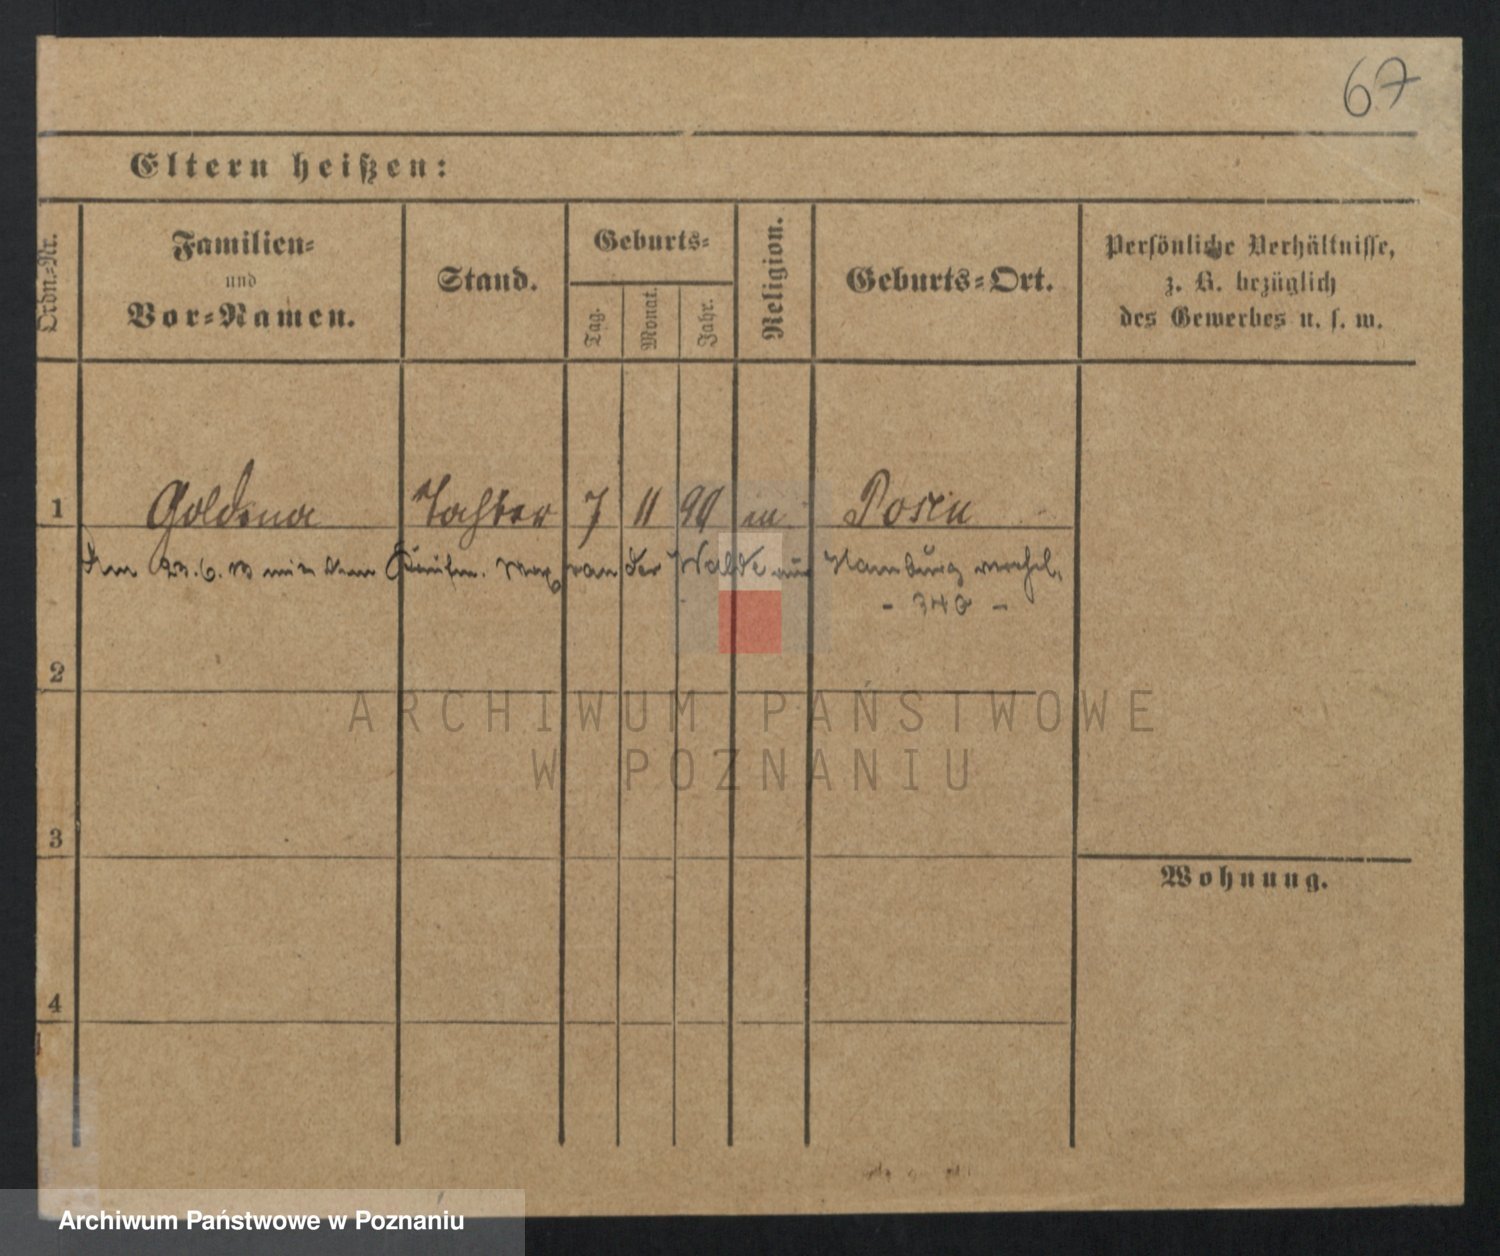 67
Eltern heißen:
Ordn.-Nr.
Familien-
und
Vor-Namen.
Stand.
Geburts-
Tag.
Monat.
Jahr.
Religion.
Geburts-Ort.
Persönliche Verhältnisse,
z. B. bezüglich
des Gewerbes u. s. w.
1 Tochter 7 11 90 Posen
Am 23.6.13 mit dem Kaufm. Max van der Walde aus Hamburg verehel.
2
ARCHIWUM PAŃSTWOWE
W POZNANIU
3
Wohnung.
4
Archiwum Państwowe w Poznaniu